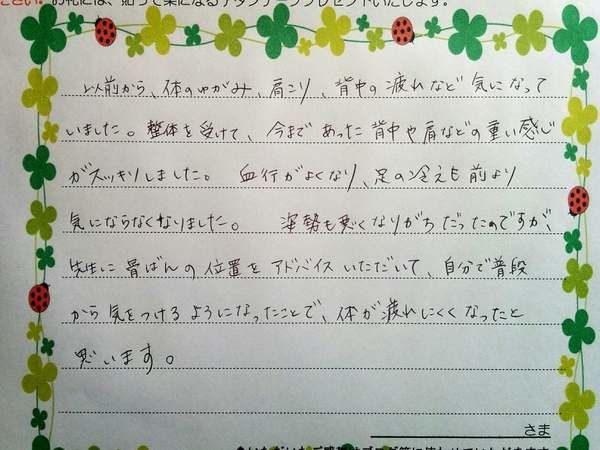 お礼には、貼って楽になるチタンテーププレゼントいたします。
以前から、体のゆがみ、肩こり、背中の疲れなど気になって
いました。整体を受けて、今まであった背中や肩などの重い感じ
がスッキリしました。 血行がよくなり、足の冷えも前より
気にならなくなりました。 姿勢も悪くなりがちだったのですが、
先生に骨ばんの位置をアドバイスいただいて、自分で普段
から気をつけるようになったことで、体が疲れにくくなったと
思います。
さま